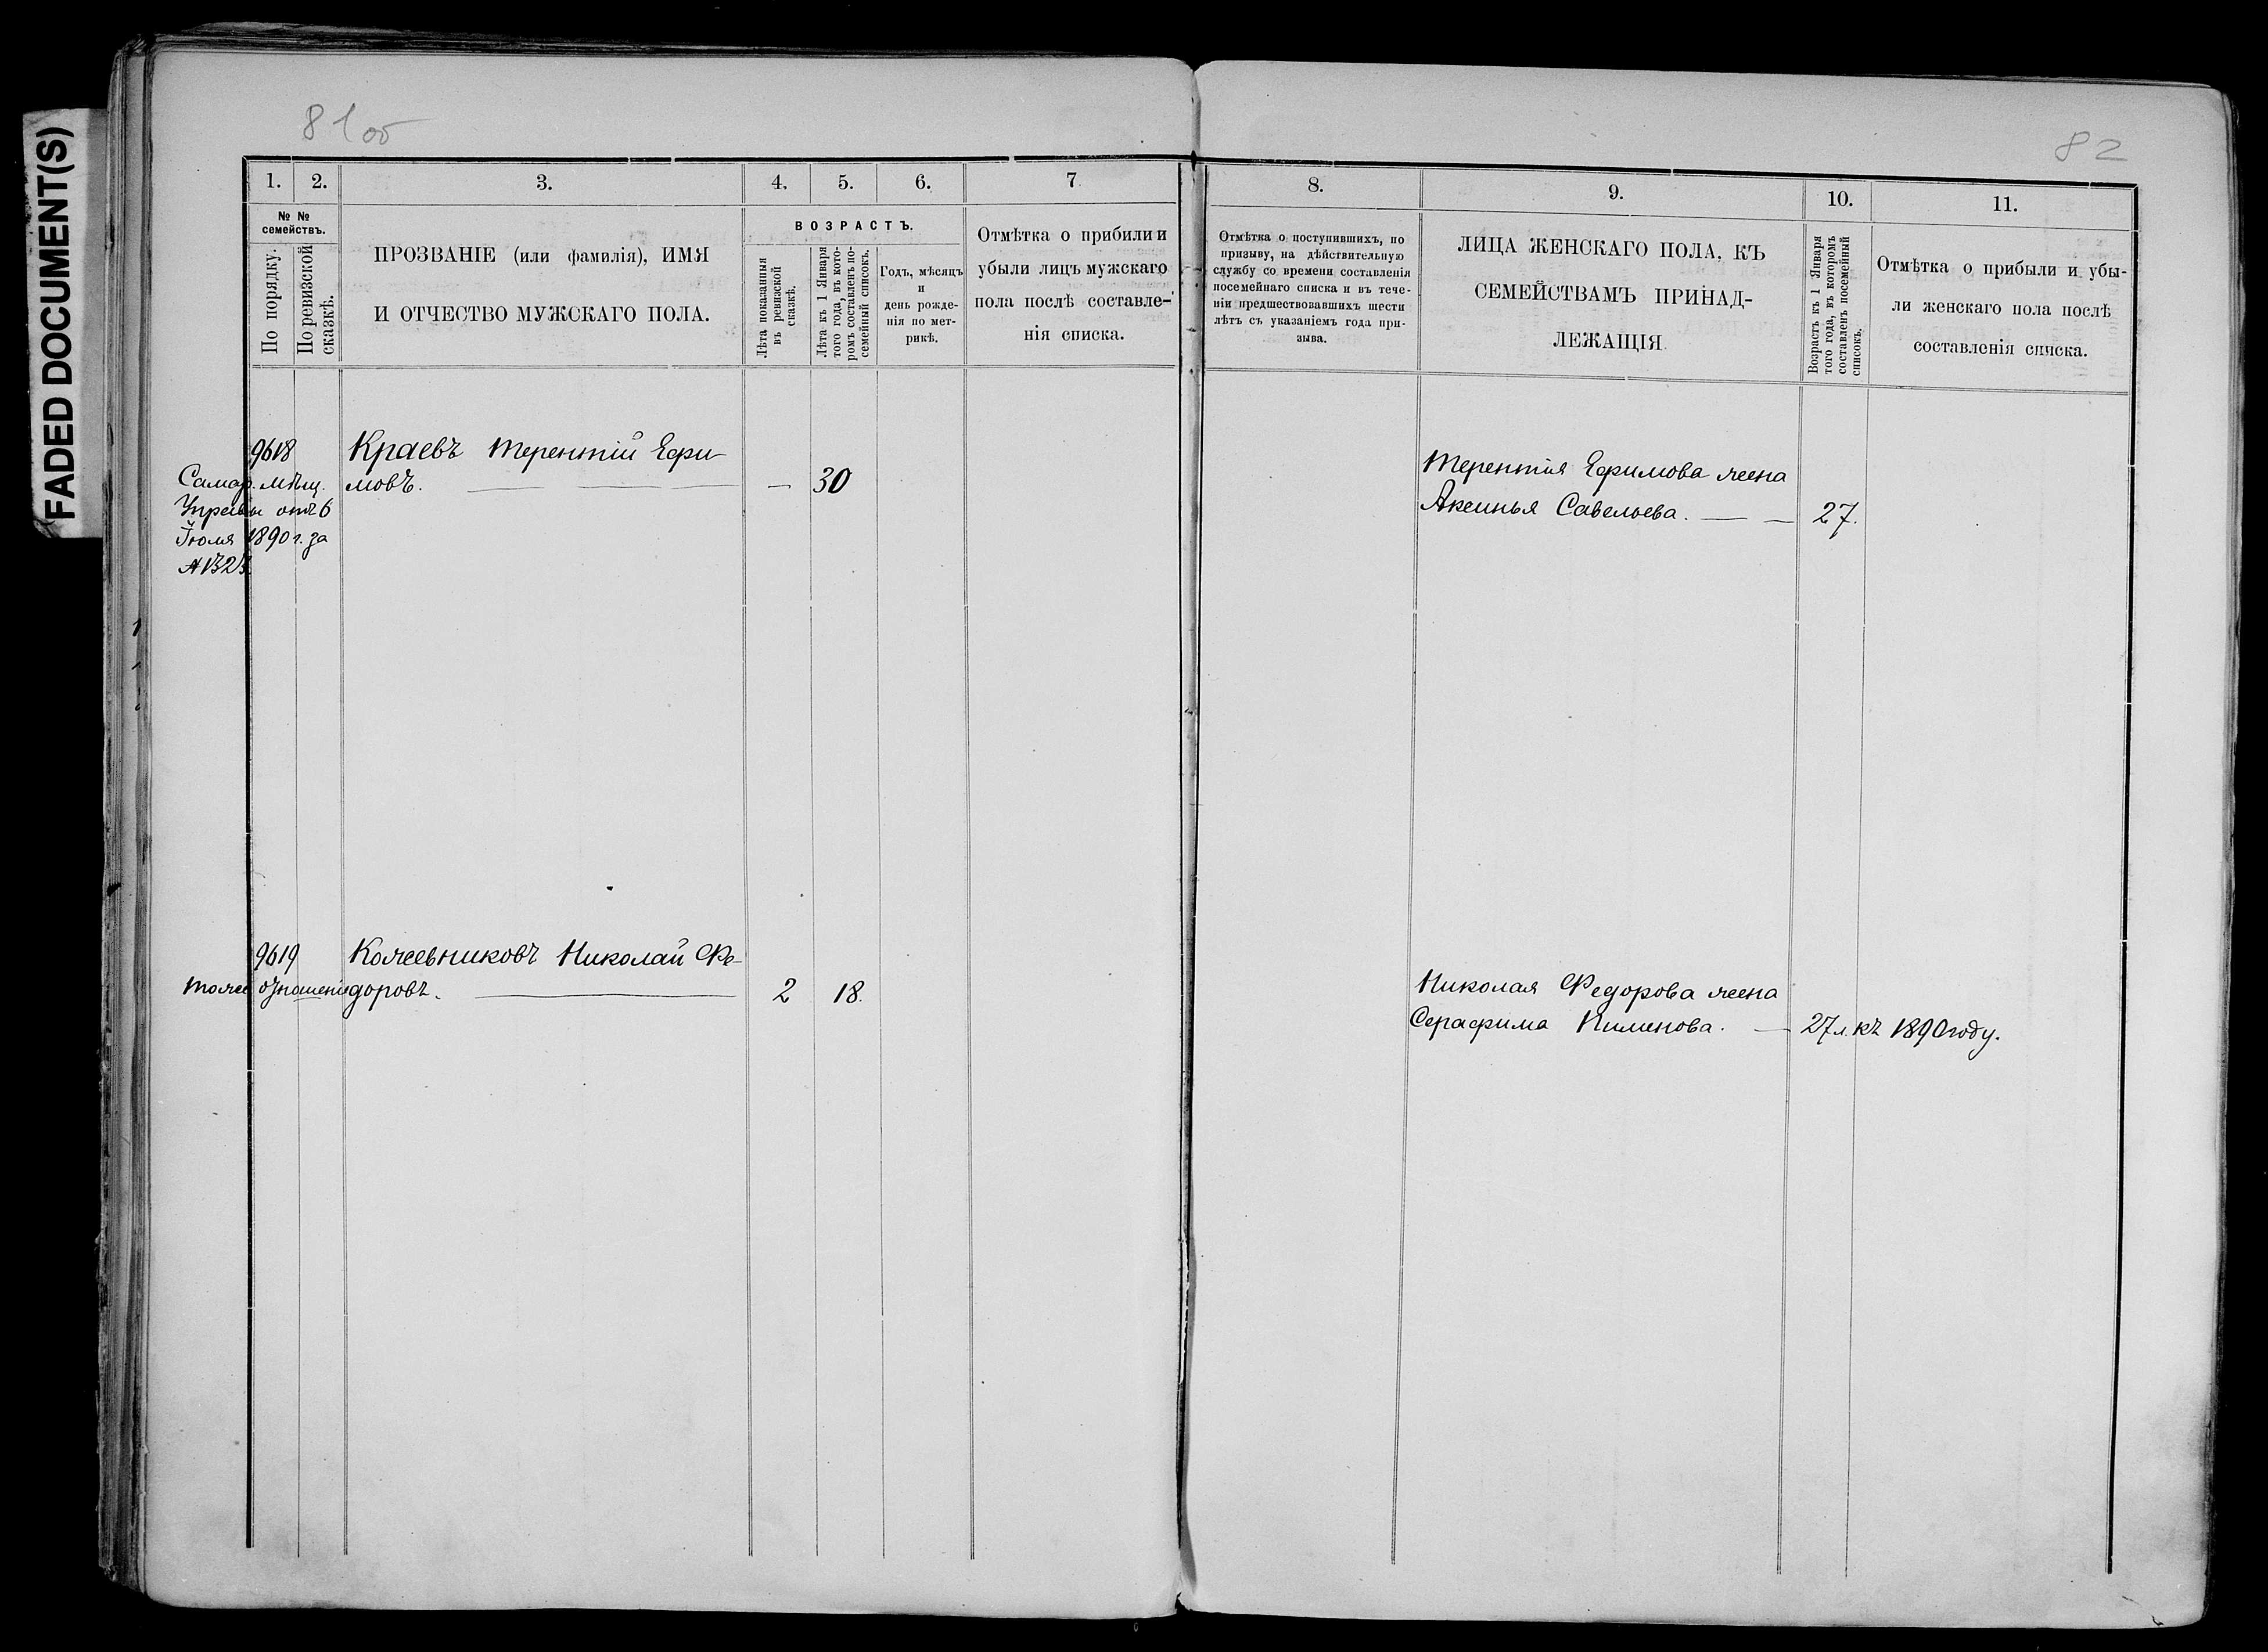 FADED DOCUMENT(S)
81об
82
1.
2.
3.
4.
5.
6.
7
8.
9.
10.
11.
№ №
семействъ.
По порядку.
По ревизской
сказкѣ.
ПРОЗВАНІЕ (или фамилія), ИМЯ
И ОТЧЕСТВО МУЖСКАГО ПОЛА.
ВОЗРАСТЪ.
Лѣта показанныя
въ ревизской
сказкѣ.
Лѣта къ 1 Января
того года, въ кото-
ромъ составленъ по-
семейный списокъ.
Годъ, мѣсяцъ
и
день рожде-
нія по мет-
рикѣ.
Отмѣтка о прибыли и
убыли лицъ мужскаго
пола послѣ составле-
нія списка.
Отмѣтка о поступившихъ, по
призыву, на дѣйствительную
службу со времени составленія
посемейнаго списка и въ тече-
ніи предшествовавшихъ шести
лѣтъ съ указаніемъ года при-
зыва.
ЛИЦА ЖЕНСКАГО ПОЛА, КЪ
СЕМЕЙСТВАМЪ ПРИНАД-
ЛЕЖАЩІЯ
Возрастъ къ 1 Января
того года, въ которомъ
составленъ посемейный
списокъ.
Отмѣтка о прибыли и убы-
ли женскаго пола послѣ
составленія списка.
9618
Самар. мѣщ.
Управы отъ 6
Іюля 1890 г. за
Краевъ Терентій Ефи-
мовъ. — — — 30
Терентія Ефимова жена
Аксинья Савельева. — — 27.
9619
тоже отношеніе
Кожевниковъ Николай Фе-
доровъ. — 2 18.
Николая Федорова жена
Серафима Пименова. — 27 л. къ 1890 году.